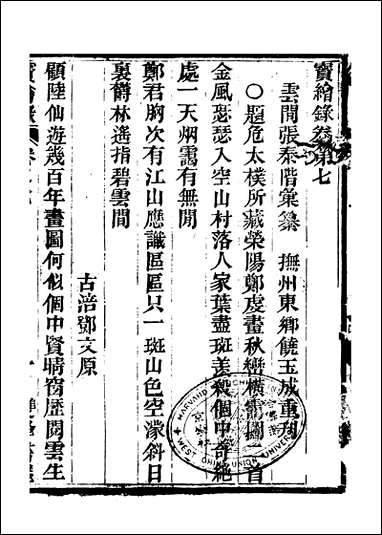 寶繪錄卷第七
雲間張泰階彙纂　撫州東鄉饒玉成重刊
〇題危太樸所藏榮陽鄭虔畫秋巒橫靄圖二首
金風瑟瑟入空山村落人家葉盡斑羨殺個中奇絕
處一天烟靄有無閒
鄭君胸次有江山應識區區只一斑山色空濛斜日
裏欝林遙指碧雲間
古涪鄧文原
顧陸仙遊幾百年畫圖何似個中賢晴窗歷閱雲生
HARVARD
WEST CHINA UNION UNIVERSITY